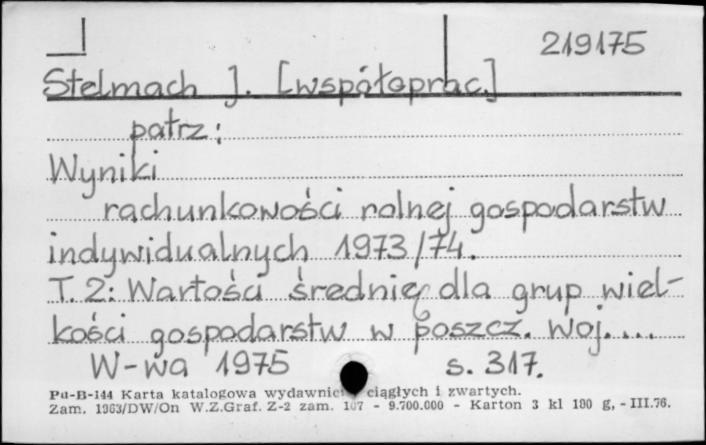 219175
Stelmach J. [współoprac.]
patrz:
Wyniki
rachunkowości rolnej gospodarstw
indywidualnych 1973/74.
T. 2: Wartości średnie dla grup wiel-
kości gospodarstw w poszcz. woj....
W-wa 1975 s. 317.
Pu-B-144 Karta katalogowa wydawnic ciągłych i zwartych.
Zam. 1963/DW/On W.Z.Graf. Z-2 zam. 107 - 9.700.000 - Karton 3 kl 190 g, - III.76.